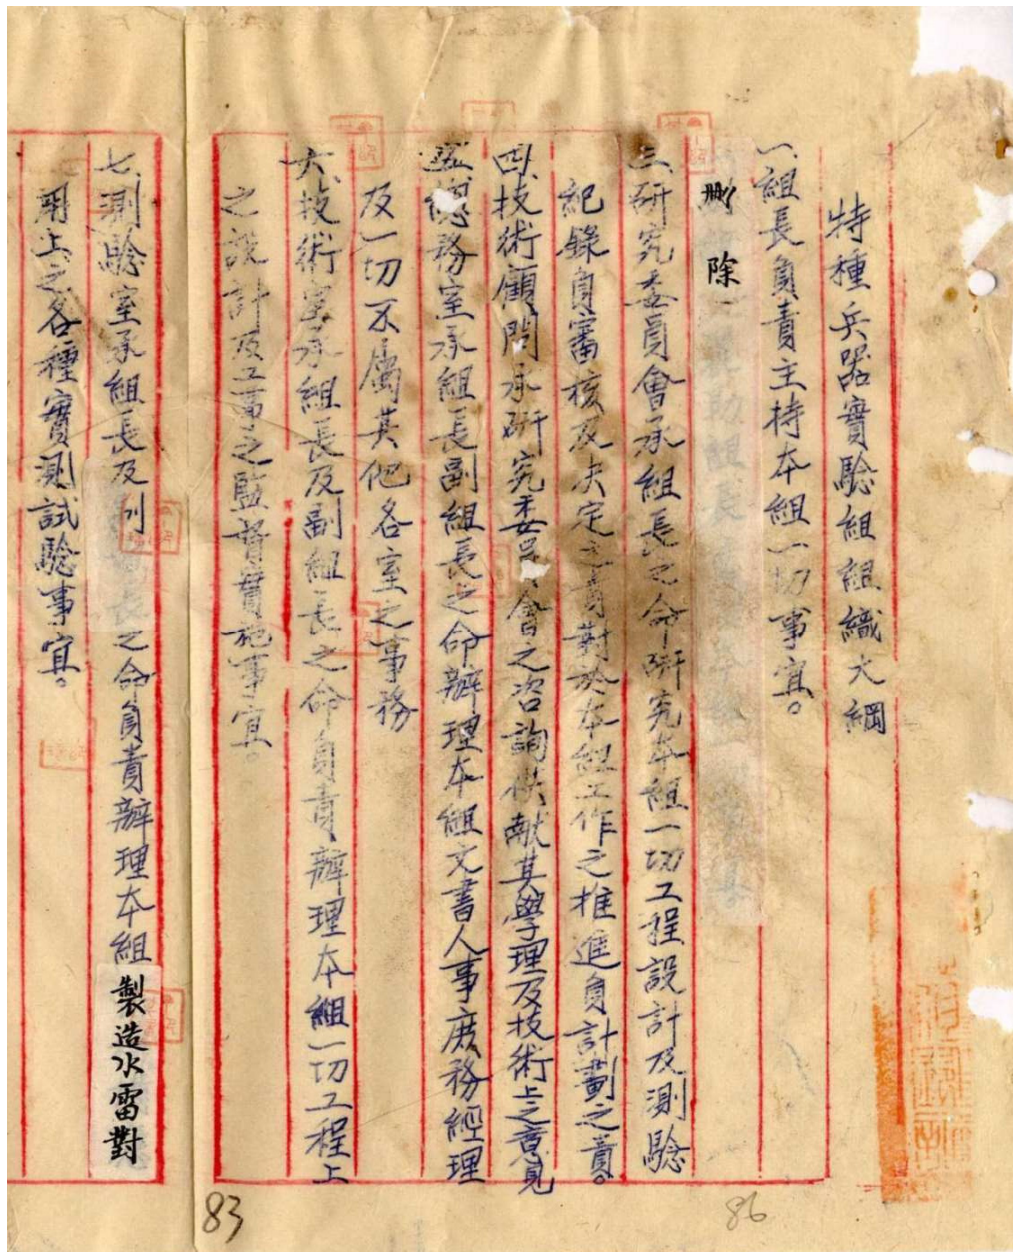 特種兵器實驗組組織大綱
一、組長負責主持本組一切事宜。
刪除
三、研究委員會承組長之命研究本組一切工程設計及測驗
紀錄負審核及决定之責對於本組工作之推進負計劃之責。
四、技術顧問承研究委員會之咨詢供献其學理及技術上之意見
五、總務室承組長副組長之命辦理本組文書人事庶務經理
及一切不屬其他各室之事務
六、技術室承組長及副組長之命負責辦理本組一切工程上
之設計及工事之監督實施事宜。
七、測驗室承組長及副組長之命負責辦理本組製造水雷對
用上之各種實測試驗事宜。
83
86